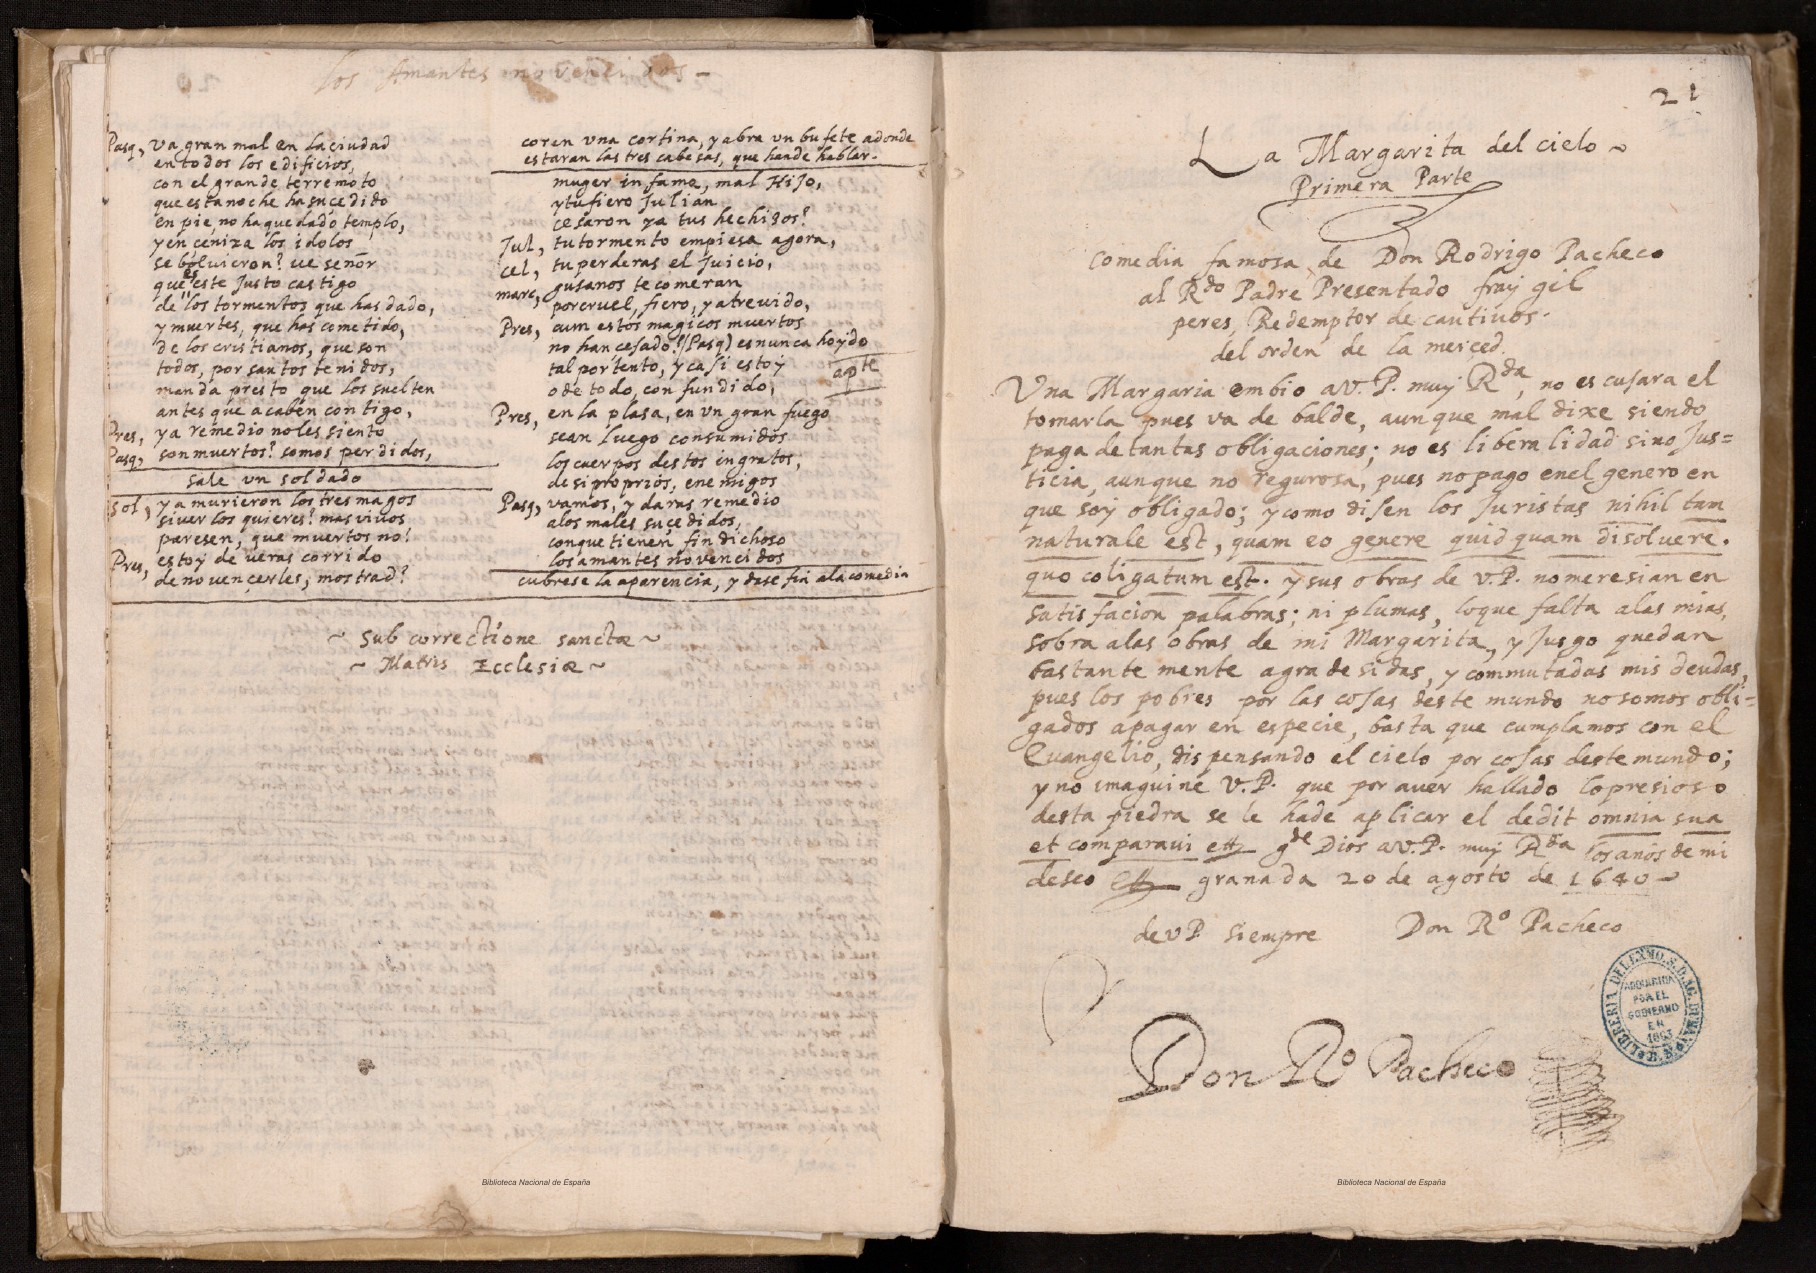 los Amantes no vencidos
Pasq, va gran mal en la ciudad
en todos los edificios,
con el grande terremoto
que esta noche ha sucedido
en pie, no ha quedado templo,
y en ceniza los idolos
se bolvieron? ve señor
que es este justo castigo
de los tormentos que has dado,
y muertes, que has cometido,
de los cristianos, que son
todos, por santos tenidos,
manda presto que los suelten
antes que acaben contigo,
Pres, ya remedio no les siento
Pasq, son muertos? somos perdidos,
sale un soldado
sol, ya murieron los tres magos
si ver los quieres? mas vivos
paresen, que muertos no!
Pres, estoy de veras corrido
de no vencerles, mostrad?
coren una cortina, y abra un bufete adonde
estaran las tres cabesas, que hande hablar.
muger infame, mal Hijo,
y tu fiero Julian
cesaron ya tus hechisos?
Jul, tu tormento empiesa agora,
cel, tu perderas el Juicio,
marc, gusanos te comeran
por cruel, fiero, y atrevido,
Pres, aum estos magicos muertos
no han cesado? (Pasq) es nunca hoydo
tal portento, y casi estoy apte
o de todo, con fundido,
Pres, en la plasa, en un gran fuego
sean luego consumidos
los cuerpos destos ingratos,
de si proprios, enemigos
Pasq, vamos, y daras remedio
alos males sucedidos,
conque tienen fin dichoso
los amantes no vencidos
cubrese la aparencia, y dase fin ala comedia
~ Sub correctione sanctæ ~
~ Matris Ecclesiæ ~
21
La Margarita del cielo ~
Primera Parte
Comedia famosa, de Don Rodrigo Pacheco
al Rdo Padre Presentado fray gil
peres, Redemptor de cautivos.
del orden de la merced.
Una Margaria embio a V. P. muy Rda, no escusara el
tomarla pues va de balde, aunque mal dixe siendo
paga de tantas obligaciones; no es liberalidad sino Jus=
ticia, aunque no regurosa, pues no pago enel genero en
que soy obligado; y como disen los Juristas nihil tam
naturale est, quam eo genere quidquam disoluere.
quo coligatum est. y sus obras de V. P. no meresian en
satisfacion palabras; ni plumas, loque falta alas mias,
sobra alas obras de mi Margarita, y Jusgo quedan
bastante mente agradesidas, y commutadas mis deudas,
pues los pobres por las cosas deste mundo no somos obli=
gados apagar en especie, basta que cumplamos con el
Evangelio, dispensando el cielo por cosas deste mundo;
y no imagine V. P. que por aver hallado lo presioso
desta piedra se le hade aplicar el dedit omnia sua
et comparavi ett gde Dios a V. P. muy Rda los años de mi
deseo ett granada 20 de agosto de 1640 ~
de V P. siempre Don Ro Pacheco
Don Ro Pacheco
LIBRERIA DEL EXMO. S. D. AG. DURAN
ADQUIRIDA
POR EL
GOBIERNO
EN
1863
B. N.
Biblioteca Nacional de España
Biblioteca Nacional de España